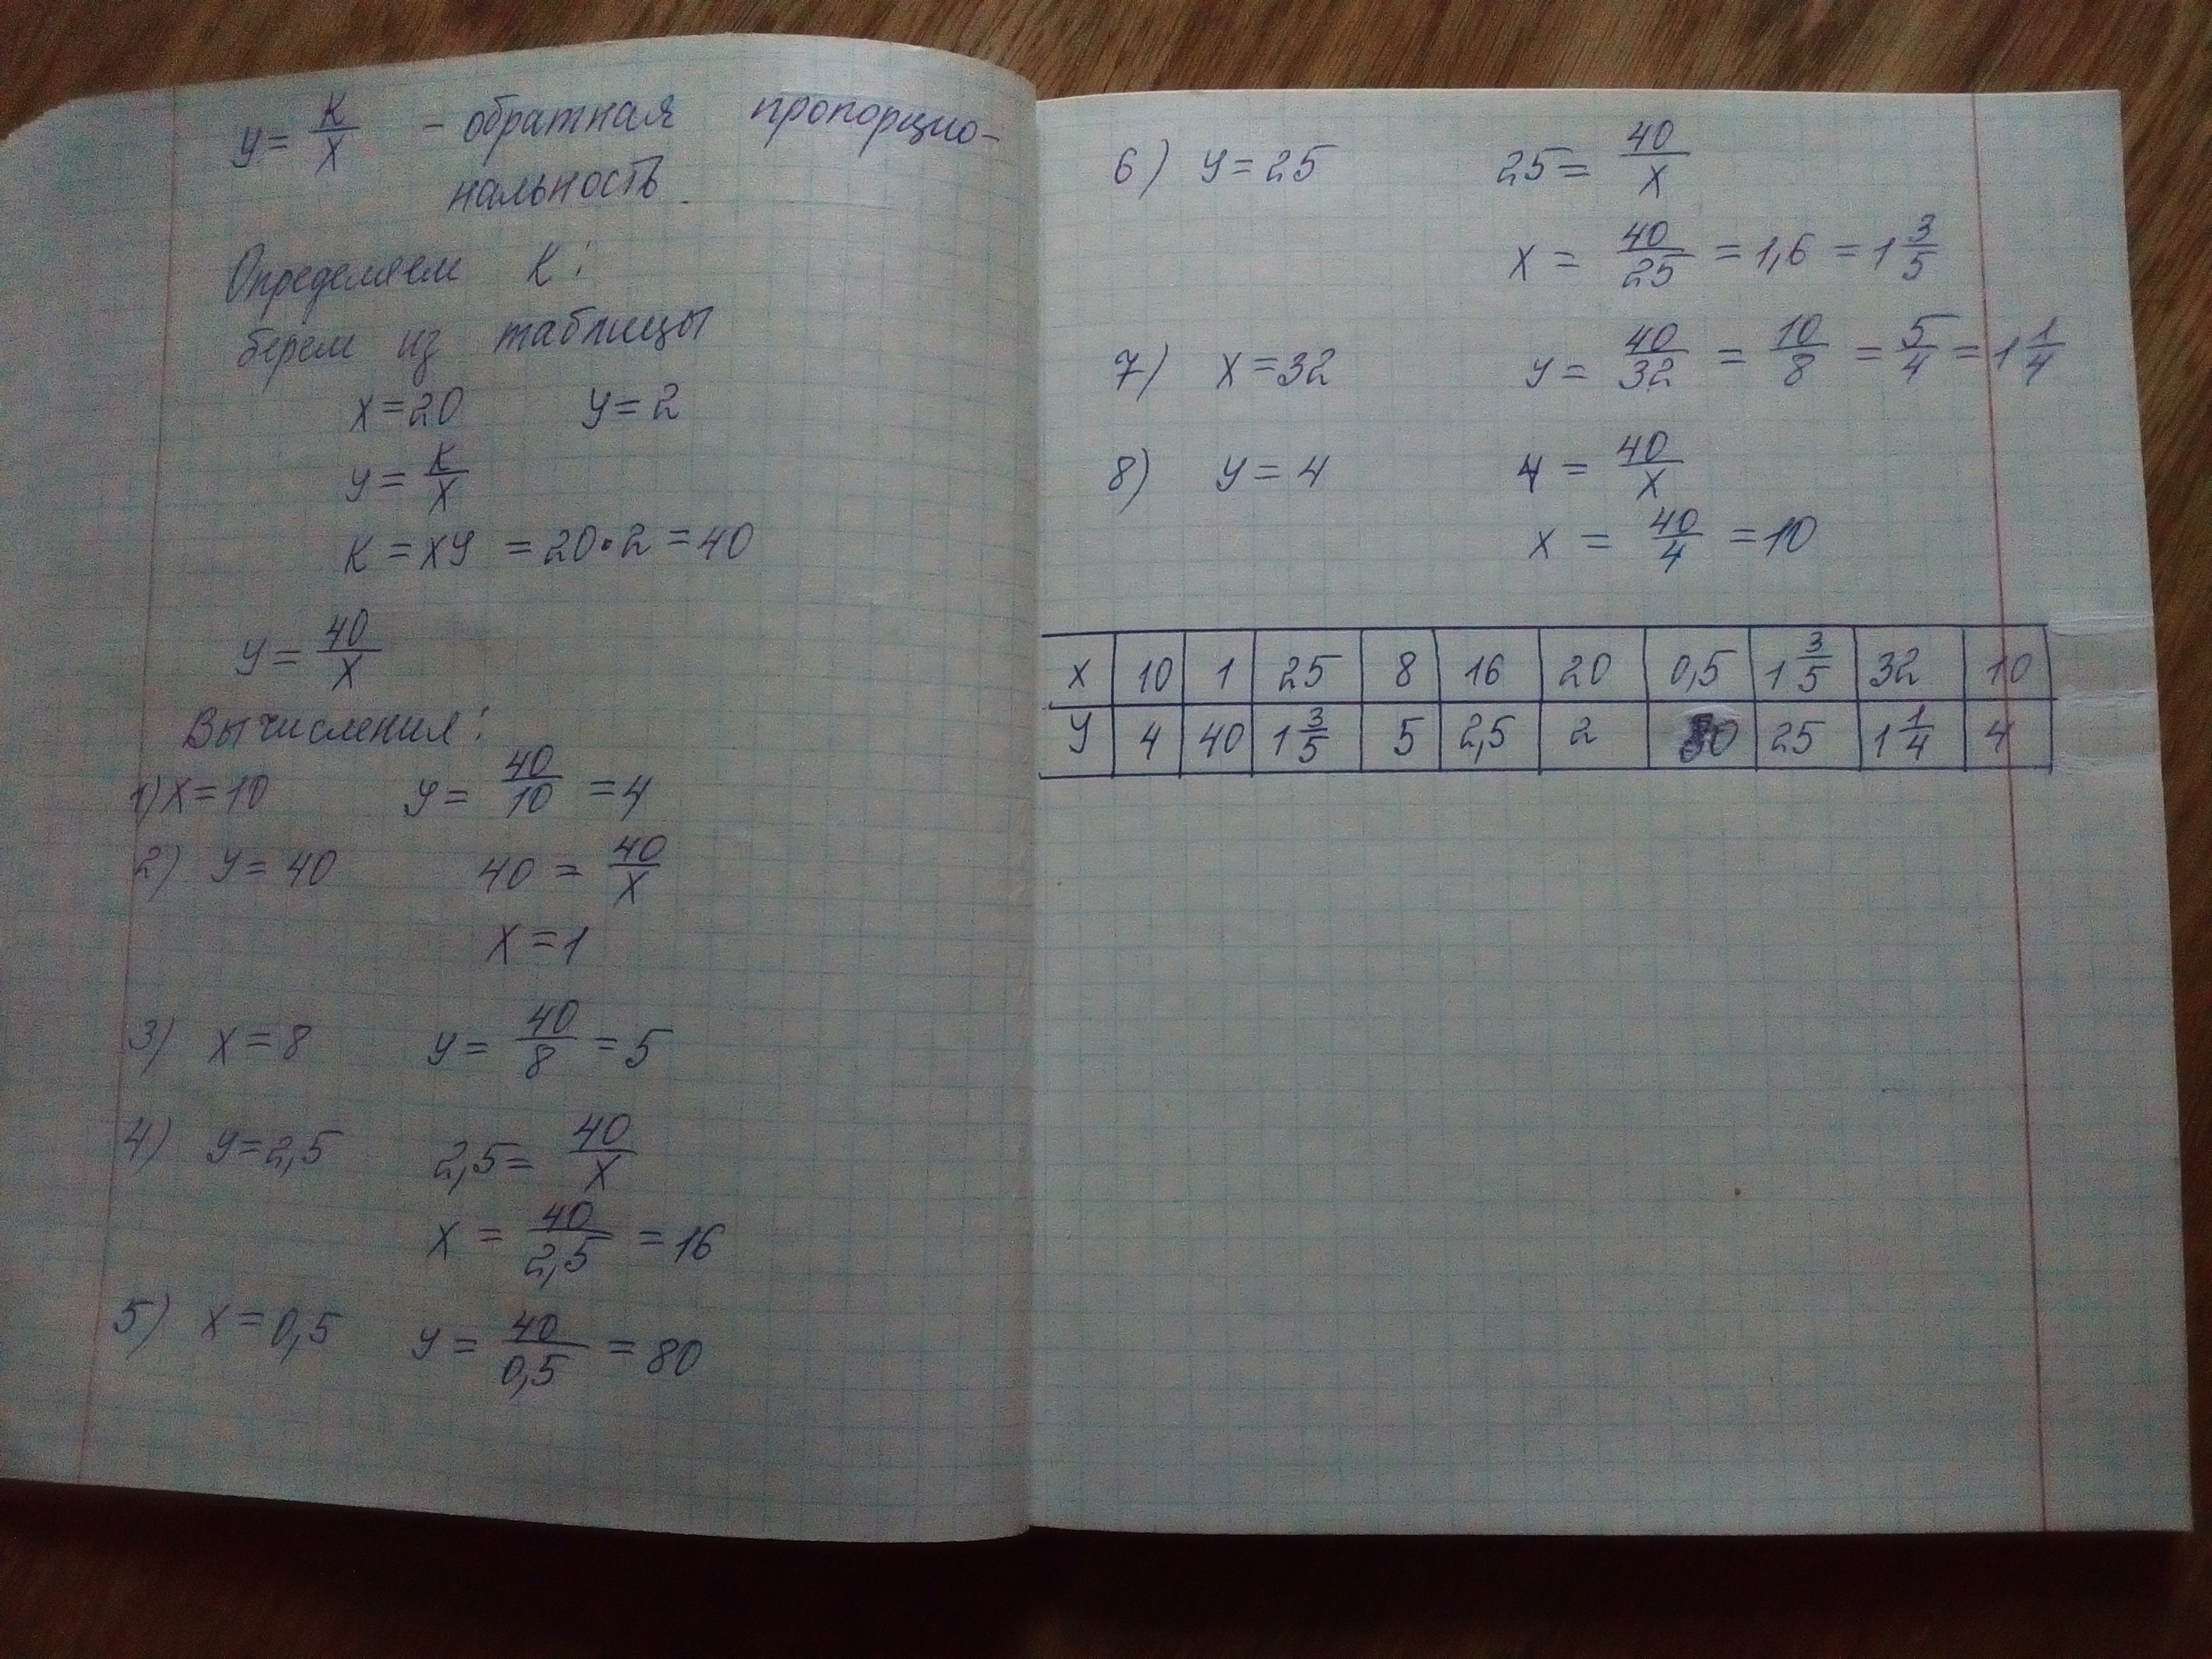 y = K/X - обратная пропорцио-
нальность.
Определяем К:
берем из таблицы
x=20 y=2
y = K/X
K = XY = 20·2 = 40
y = 40/X
Вычисления:
1) X=10 y = 40/10 = 4
2) y = 40 40 = 40/X
X = 1
3) X = 8 y = 40/8 = 5
4) y=2,5 2,5 = 40/X
X = 40/2,5 = 16
5) X = 0,5 y = 40/0,5 = 80
6) y = 25 25 = 40/X
X = 40/25 = 1,6 = 1 3/5
7) X = 32 y = 40/32 = 10/8 = 5/4 = 1 1/4
8) y = 4 4 = 40/X
X = 40/4 = 10
X 10 1 25 8 16 20 0,5 1 3/5 32 10
y 4 40 1 3/5 5 2,5 2 80 25 1 1/4 4